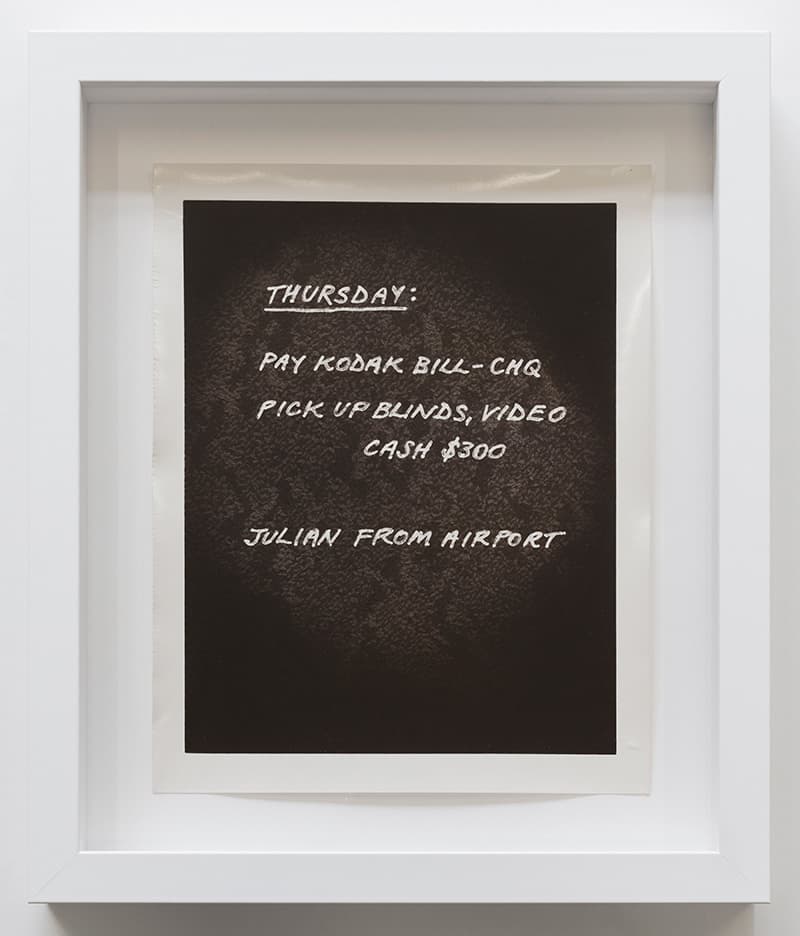 THURSDAY:
PAY KODAK BILL - CHQ
PICK UP BLINDS, VIDEO
CASH $300
JULIAN FROM AIRPORT